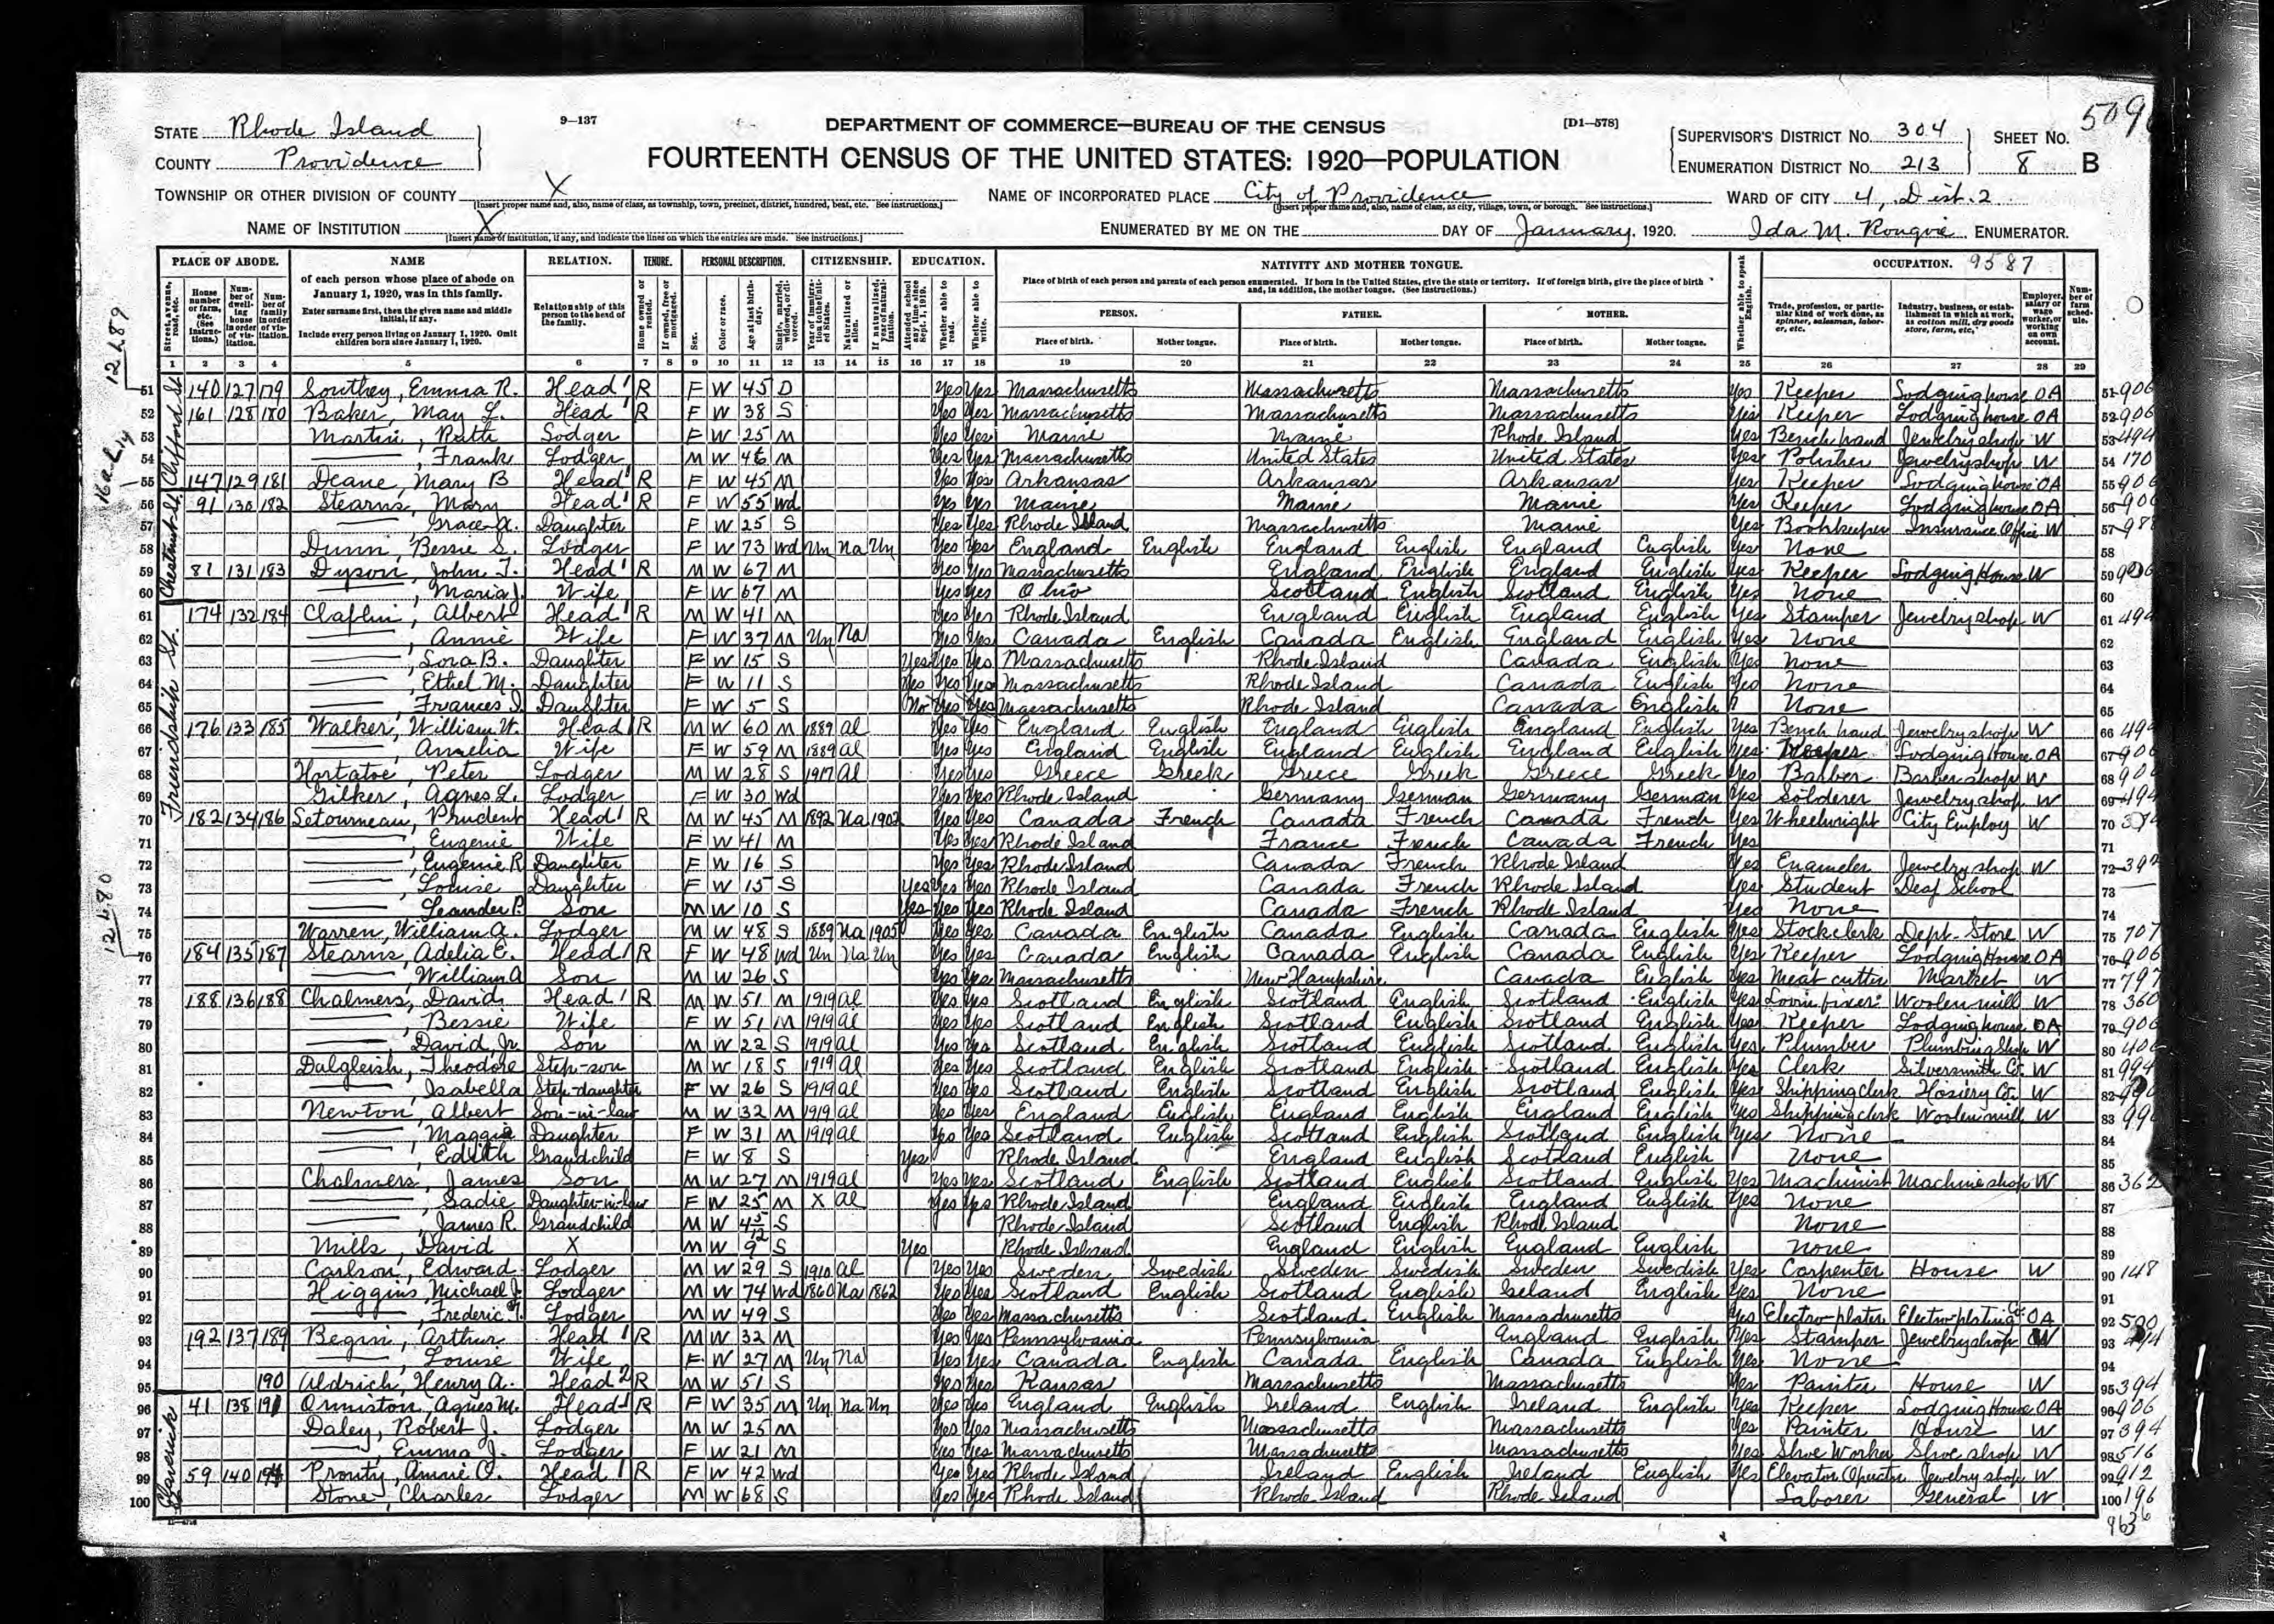 5096
STATE Rhode Island
9—137
DEPARTMENT OF COMMERCE—BUREAU OF THE CENSUS
[D1—578]
SUPERVISOR'S DISTRICT NO. 304 SHEET NO.
COUNTY Providence
FOURTEENTH CENSUS OF THE UNITED STATES: 1920—POPULATION
ENUMERATION DISTRICT NO. 213 8 B
TOWNSHIP OR OTHER DIVISION OF COUNTY X
[Insert proper name and, also, name of class, as township, town, precinct, district, hundred, beat, etc. See instructions.]
NAME OF INCORPORATED PLACE City of Providence
[Insert proper name and, also, name of class, as city, village, town, or borough. See instructions.]
WARD OF CITY 4, Dist. 2
NAME OF INSTITUTION X
[Insert name of institution, if any, and indicate the lines on which the entries are made. See instructions.]
ENUMERATED BY ME ON THE DAY OF January, 1920. Ida M. ENUMERATOR.
PLACE OF ABODE. NAME RELATION. TENURE. PERSONAL DESCRIPTION. CITIZENSHIP. EDUCATION. NATIVITY AND MOTHER TONGUE. OCCUPATION. 9587
of each person whose place of abode on January 1, 1920, was in this family.
Enter surname first, then the given name and middle initial, if any.
Include every person living on January 1, 1920. Omit children born since January 1, 1920.
Relationship of this person to the head of the family.
Place of birth of each person and parents of each person enumerated. If born in the United States, give the state or territory. If of foreign birth, give the place of birth and, in addition, the mother tongue. (See instructions.)
PERSON. FATHER. MOTHER.
Place of birth. Mother tongue. Place of birth. Mother tongue. Place of birth. Mother tongue.
1 2 3 4 5 6 7 8 9 10 11 12 13 14 15 16 17 18 19 20 21 22 23 24 25 26 27 28 29
Clifford St.
51 140 127 179 Southey, Emma R. Head 1 R F W 45 D Yes Yes Massachusetts Massachusetts Massachusetts Yes Keeper Lodging house OA 51 906
52 161 128 180 Baker, May L. Head R F W 38 S Yes Yes Massachusetts Massachusetts Massachusetts Yes Keeper Lodging house OA 52 906
53 Martin, Ruth Lodger F W 25 M Yes Yes Maine Maine Rhode Island Yes Bench hand Jewelry shop W 53 494
54 ——, Frank Lodger M W 46 M Yes Yes Massachusetts United States United States Yes Polisher Jewelry shop W 54 170
55 147 129 181 Deane, Mary B Head 1 R F W 45 M Yes Yes Arkansas Arkansas Arkansas Yes Keeper Lodging house OA 55 906
Chestnut St.
56 91 130 182 Stearns, Mary Head 1 R F W 55 Wd Yes Yes Maine Maine Maine Yes Keeper Lodging house OA 56 906
57 ——, Grace A. Daughter F W 25 S Yes Yes Rhode Island Massachusetts Maine Yes Bookkeeper Insurance Office W 57 988
58 Dunn, Bessie S. Lodger F W 73 Wd Un Na Un Yes Yes England English England English England English Yes None 58
59 81 131 183 Dyson, John T. Head 1 R M W 67 M Yes Yes Massachusetts England English England English Yes Keeper Lodging House W 59 906
60 ——, Maria J. Wife F W 67 M Yes Yes Ohio Scotland English Scotland English Yes None 60
Friendship St.
61 174 132 184 Claflin, Albert Head 1 R M W 41 M Yes Yes Rhode Island England English England English Yes Stamper Jewelry shop W 61 494
62 ——, Annie Wife F W 37 M Un Na Yes Yes Canada English Canada English England English Yes None 62
63 ——, Lora B. Daughter F W 15 S Yes Yes Yes Massachusetts Rhode Island Canada English Yes None 63
64 ——, Ethel M. Daughter F W 11 S Yes Yes Yes Massachusetts Rhode Island Canada English Yes None 64
65 ——, Frances I. Daughter F W 5 S No Yes Yes Massachusetts Rhode Island Canada English None 65
66 176 133 185 Walker, William W. Head 1 R M W 60 M 1889 Al Yes Yes England English England English England English Yes Bench hand Jewelry shop W 66 494
67 ——, Amelia Wife F W 59 M 1889 Al Yes Yes England English England English England English Yes Keeper Lodging House OA 67 906
68 Hortatoe, Peter Lodger M W 28 S 1917 Al Yes Yes Greece Greek Greece Greek Greece Greek Yes Barber Barber shop W 68 90
69 Gilker, Agnes L. Lodger F W 30 Wd Yes Yes Rhode Island Germany German Germany German Yes Solderer Jewelry shop W 69 494
70 182 134 186 Letourneau, Prudent Head 1 R M W 45 M 1892 Na 1902 Yes Yes Canada French Canada French Canada French Yes Wheelwright City Employ W 70
71 ——, Eugenie Wife F W 41 M Yes Yes Rhode Island France French Canada French Yes 71
72 ——, Eugenie R Daughter F W 16 S Yes Yes Rhode Island Canada French Rhode Island Yes Enameler Jewelry shop W 72 392
73 ——, Louise Daughter F W 15 S Yes Yes Yes Rhode Island Canada French Rhode Island Yes Student Deaf School 73
74 ——, Leander P. Son M W 10 S Yes Yes Yes Rhode Island Canada French Rhode Island Yes None 74
75 Warren, William A. Lodger M W 48 S 1889 Na 1905 Yes Yes Canada English Canada English Canada English Yes Stock clerk Dept. Store W 75 707
76 184 135 187 Stearns, Adelia E. Head 1 R F W 48 Wd Un Na Un Yes Yes Canada English Canada English Canada English Yes Keeper Lodging House OA 76 906
77 ——, William A Son M W 26 S Yes Yes Massachusetts New Hampshire Canada English Yes Meat cutter Market W 77 797
78 188 136 188 Chalmers, David Head 1 R M W 51 M 1919 Al Yes Yes Scotland English Scotland English Scotland English Yes Loom fixer Woolen mill W 78 360
79 ——, Bessie Wife F W 51 M 1919 Al Yes Yes Scotland English Scotland English Scotland English Yes Keeper Lodging house OA 79 906
80 ——, David, Jr. Son M W 22 S 1919 Al Yes Yes Scotland English Scotland English Scotland English Yes Plumber Plumbing Shop W 80 406
81 Dalgleish, Theodore Step-son M W 18 S 1919 Al Yes Yes Scotland English Scotland English Scotland English Yes Clerk Silversmith Co. W 81 994
82 ——, Isabella Step-daughter F W 26 S 1919 Al Yes Yes Scotland English Scotland English Scotland English Yes Shipping Clerk Hosiery Co. W 82
83 Newton, Albert Son-in-law M W 32 M 1919 Al Yes Yes England English England English England English Yes Shipping clerk Woolen mill W 83
84 ——, Maggie Daughter F W 31 M 1919 Al Yes Yes Scotland English Scotland English Scotland English Yes None 84
85 ——, Edith Grandchild F W 8 S Yes Rhode Island England English Scotland English None 85
86 Chalmers, James Son M W 27 M 1919 Al Yes Yes Scotland English Scotland English Scotland English Yes Machinist Machine shop W 86 362
87 ——, Sadie Daughter-in-law F W 25 M X Al Yes Yes Rhode Island England English England English Yes None 87
88 ——, James R. Grandchild M W 4 5/12 S Rhode Island Scotland English Rhode Island None 88
89 Mills, David X M W 9 S Yes Rhode Island England English England English None 89
90 Carlson, Edward Lodger M W 29 S 1910 Al Yes Yes Sweden Swedish Sweden Swedish Sweden Swedish Yes Carpenter House W 90 148
91 Higgins, Michael J. Lodger M W 74 Wd 1860 Na 1862 Yes Yes Scotland English Scotland English Ireland English Yes None 91
92 ——, Frederic T. Lodger M W 49 S Yes Yes Massachusetts Scotland English Massachusetts Yes Electro-plater Electro-plating Co. OA 92 500
93 192 137 189 Begin, Arthur Head 1 R M W 32 M Yes Yes Pennsylvania Pennsylvania England English Yes Stamper Jewelry shop W 93
94 ——, Louise Wife F W 27 M Un Na Yes Yes Canada English Canada English Canada English Yes None 94
95 190 Aldrich, Henry A. Head 2 R M W 51 S Yes Yes Kansas Massachusetts Massachusetts Yes Painter House W 95 394
Claverick
96 41 138 191 Ormiston, Agnes M. Head 1 R F W 35 M Un Na Un Yes Yes England English Ireland English Ireland English Yes Keeper Lodging House OA 96 906
97 Daley, Robert J. Lodger M W 25 M Yes Yes Massachusetts Massachusetts Massachusetts Yes Painter House W 97 394
98 ——, Emma J. Lodger F W 21 M Yes Yes Massachusetts Massachusetts Massachusetts Yes Shoe Worker Shoe shop W 98 516
99 59 140 194 Prouty, Annie O. Head 1 R F W 42 Wd Yes Yes Rhode Island Ireland English Ireland English Yes Elevator Operator Jewelry shop W 99 912
100 Stone, Charles Lodger M W 68 S Yes Yes Rhode Island Rhode Island Rhode Island Laborer General W 100 196